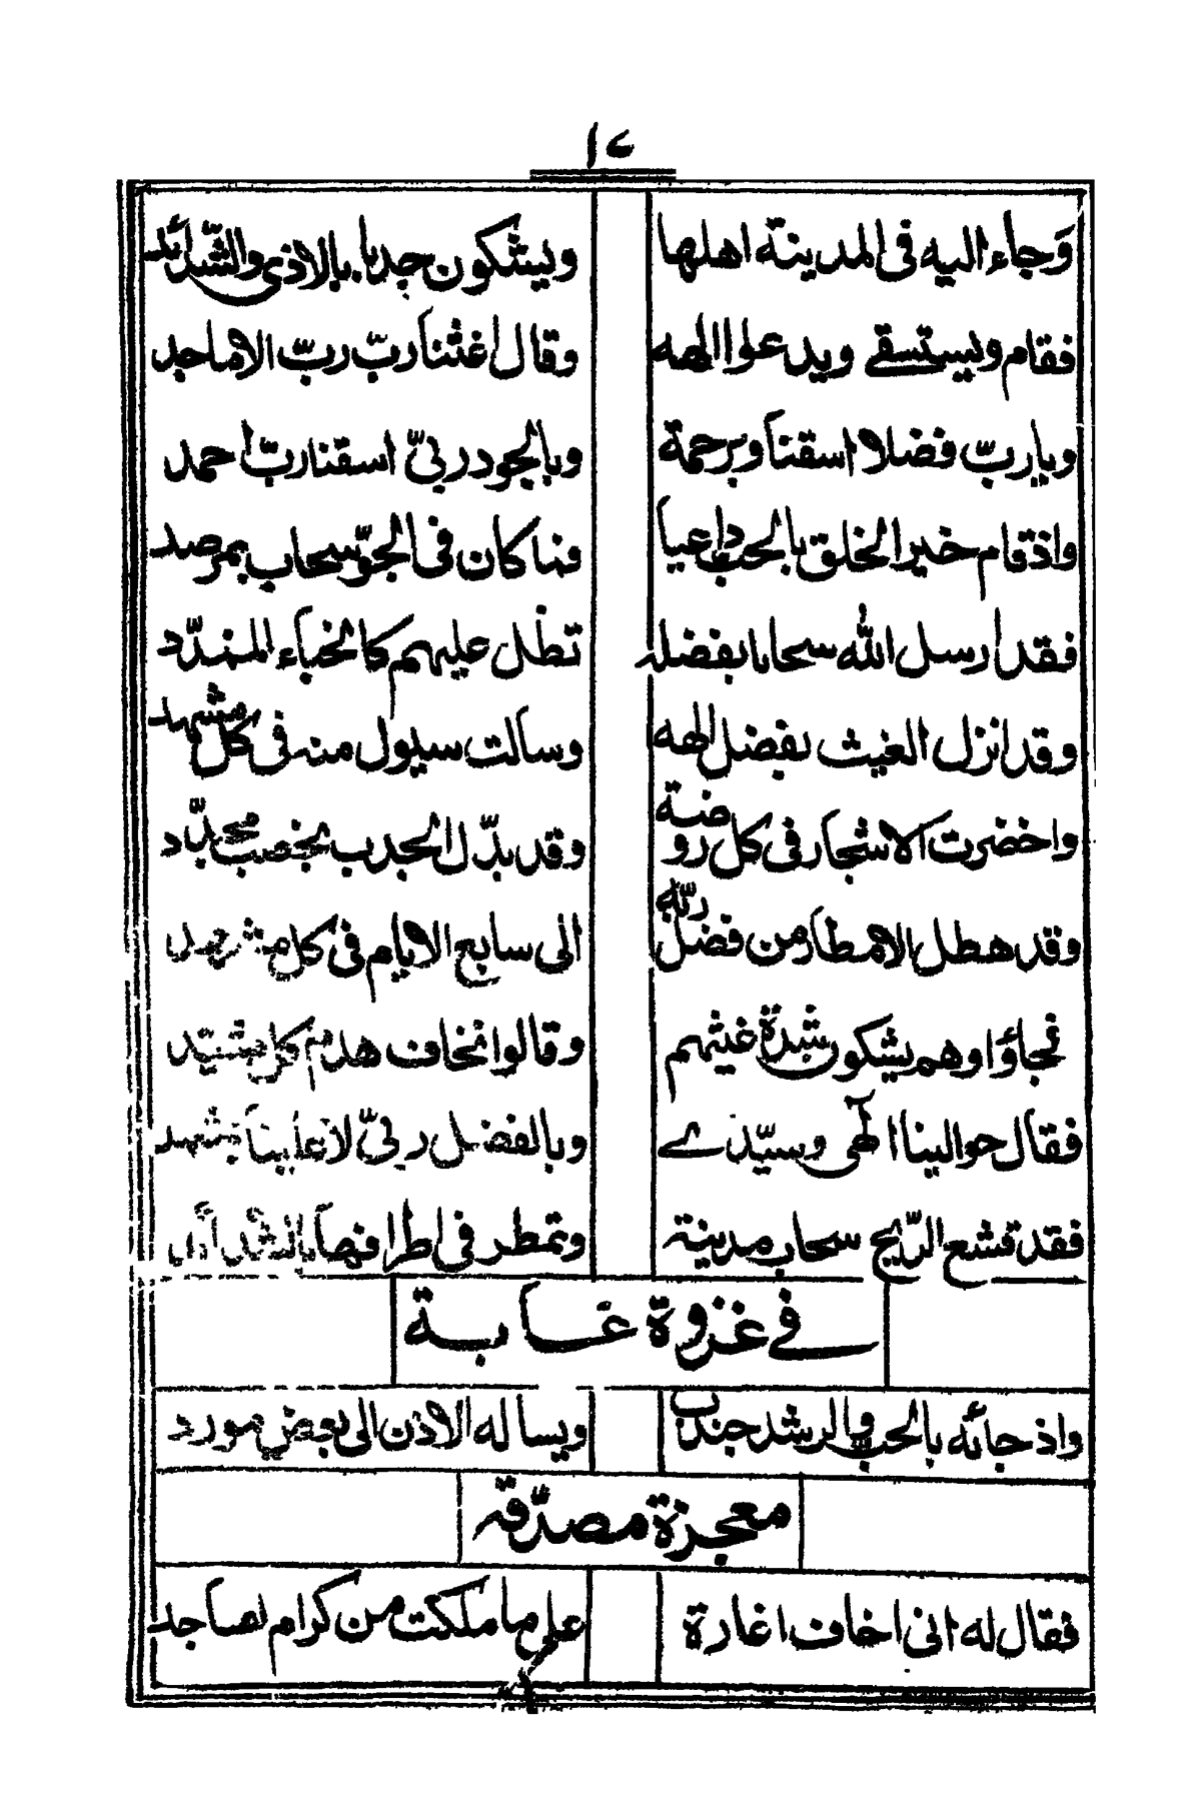 ١٤
وَجاء اليه فى المدينة اهلها ويشكون جدبا بالاذى والشدائد
فقام ويستسقے ويدعوا الهه وقال اغثنا ربّ ربّ الاماجد
ويارب فضلا اسقنا وبرحمة وبالجود ربىّ اسقنا ربّ احمد
واذ قام خير الخلق بالحب داعيا فما كان فى الجوّ سحاب بمرصد
فقد ارسل الله سحابا بفضله تظل عليهم كالخباء الممدّد
وقد انزل الغيث بفضل الهه وسالت سيول منه فى كل مشهد
واخضرت الاشجار فى كل روضة وقد بدّل الجدب بخصب مجدّد
وقد هطل الامطار من فضل ربّه الى سابع الايام فى كل
فجاؤا وهم يشكون شدة غيثهم وقالوا نخاف هدم كل مشيّد
فقال حوالينا الٰهى وسيّدے وبالفضل ربىّ لا علينا
فقد قشع الرّيح سحاب مدينة وتمطر فى اطرافها
فے غزوة غابة
واذ جائه بالحب والرشد جندب ويساله الاذن الى بعض مورد
معجزة مصدّقه
فقال له انى اخاف اغارة على ما ملكت من كرام